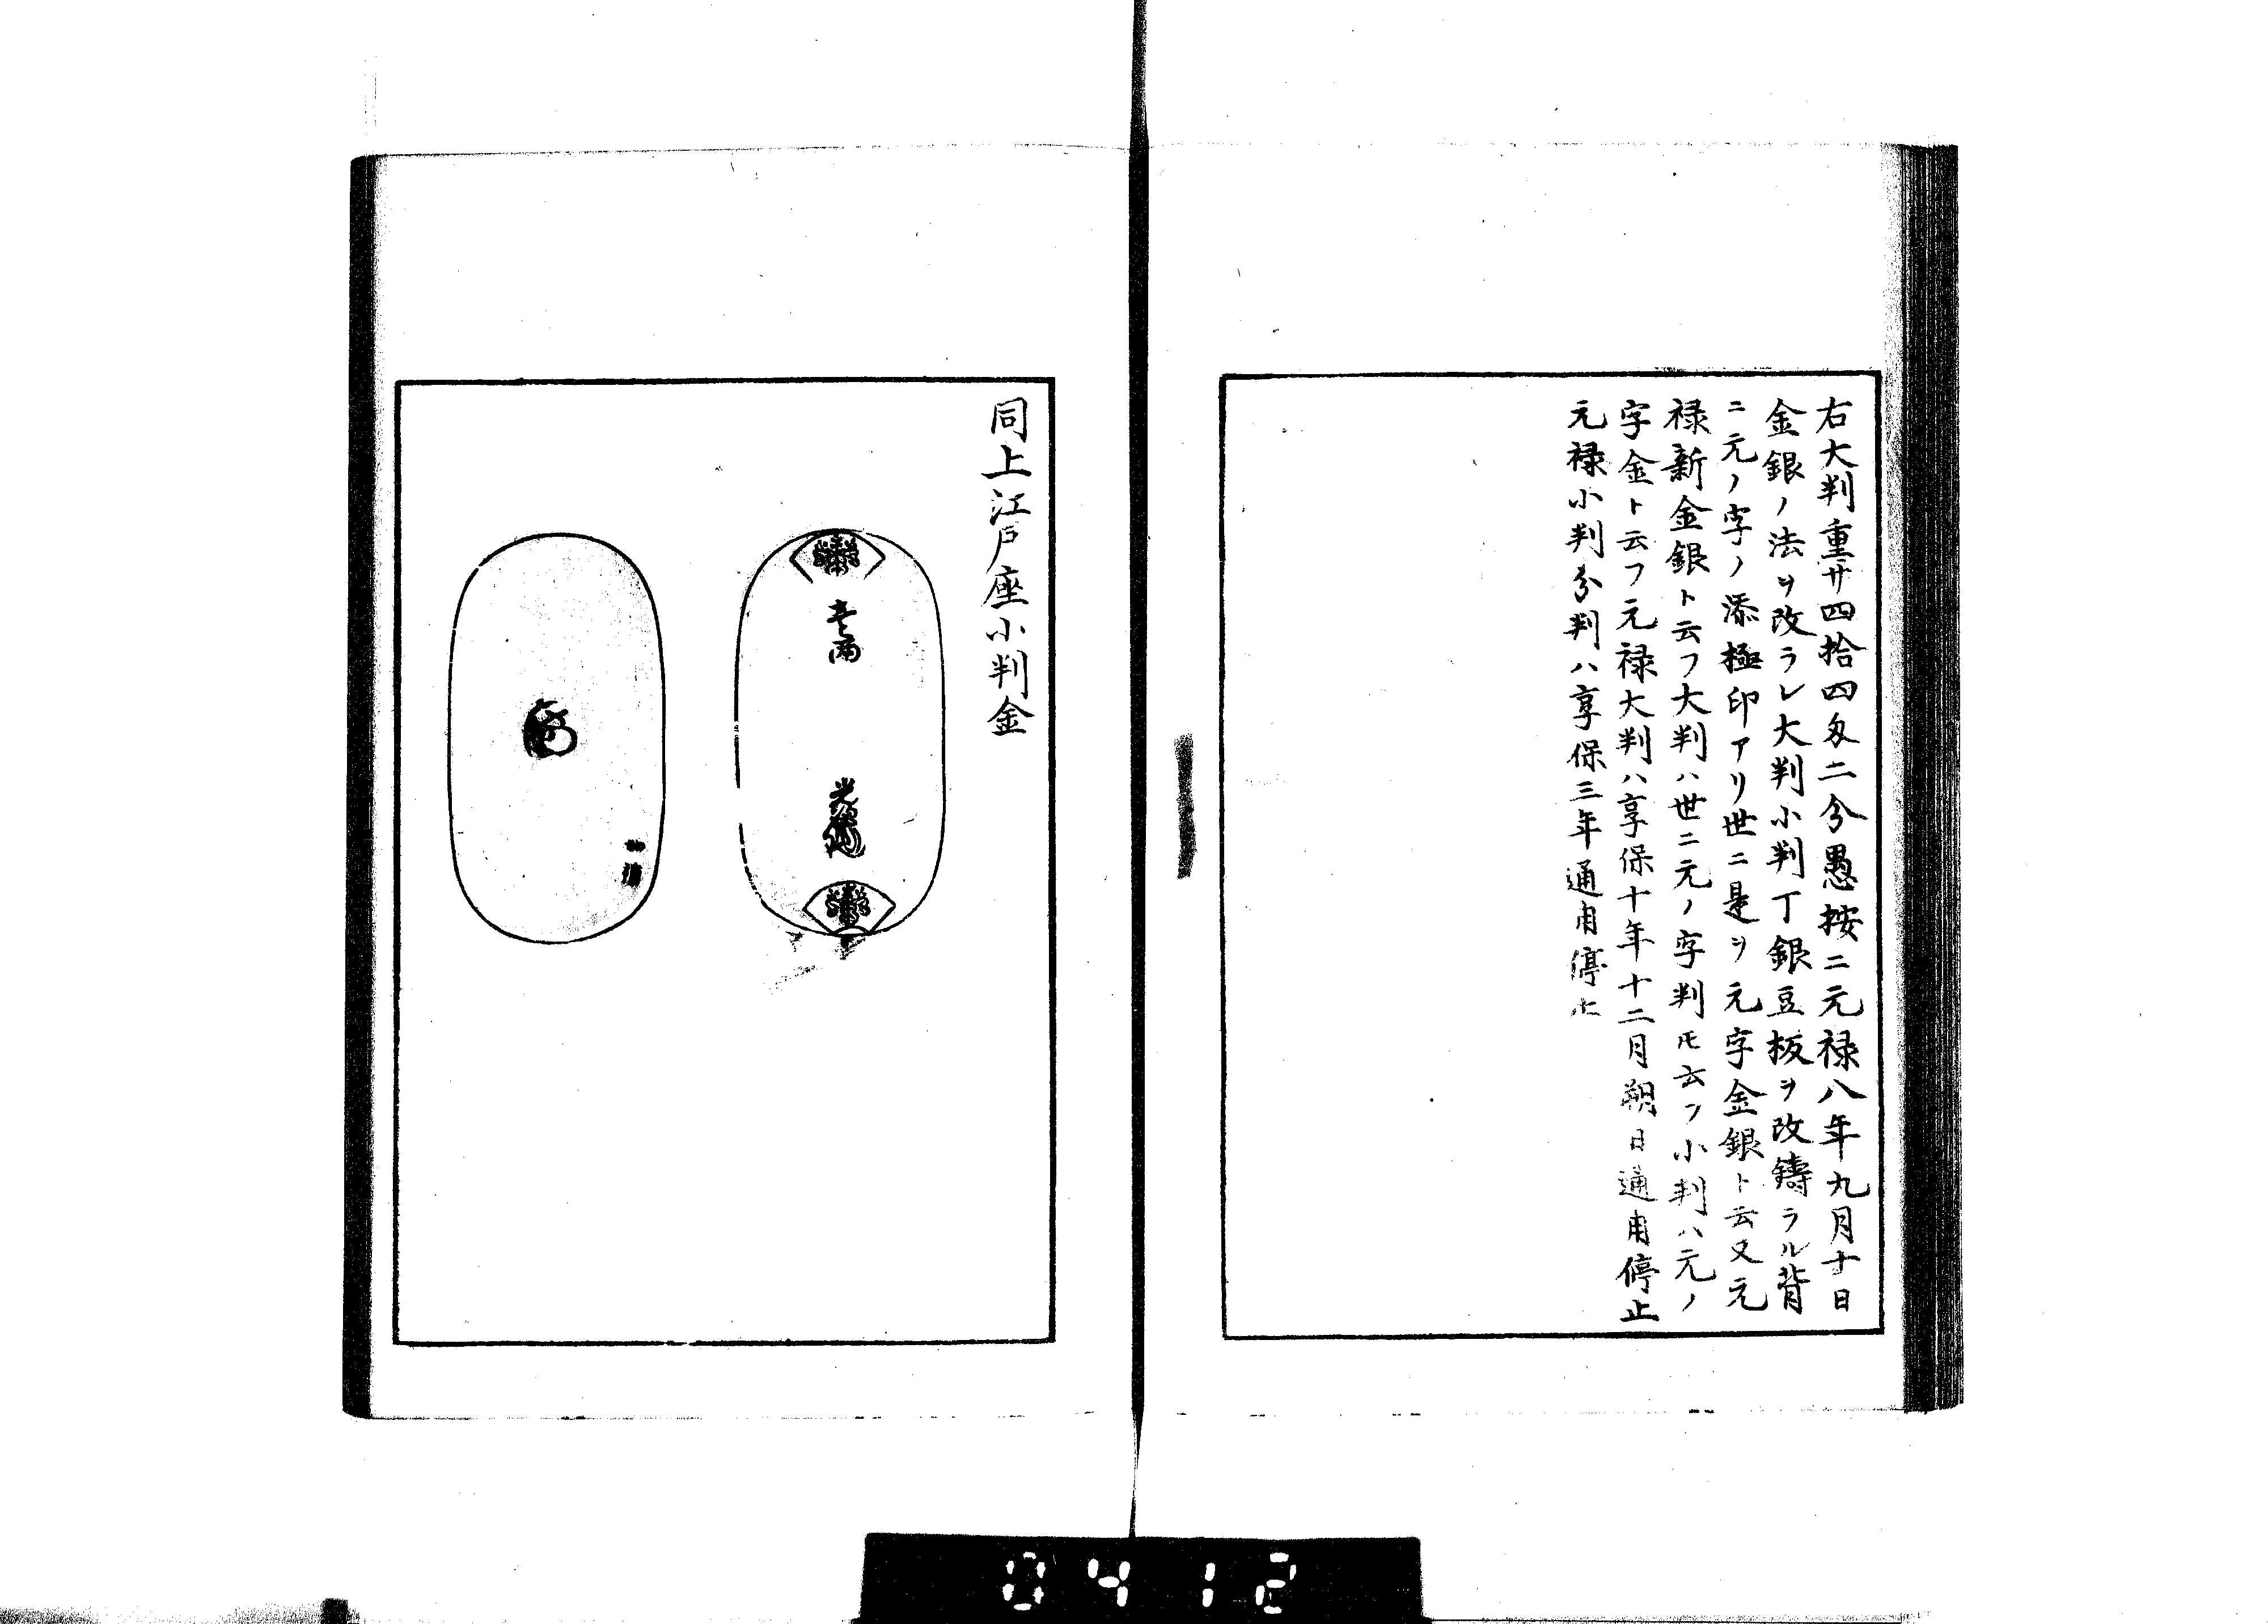 右大判重サ四拾四匁二分愚按ニ元禄八年九月十日
金銀ノ法ヲ改ラレ大判小判丁銀豆板ヲ改鋳ラル背
ニ元ノ字ノ添極印アリ世ニ是ヲ元字金銀ト云又元
禄新金銀ト云フ大判ハ世ニ元ノ字判ㇳモ云フ小判ハ元ノ
字金ト云フ元禄大判ハ享保十年十二月朔日通用停止
元禄小判分判ハ享保三年通用停止
同上江戸座小判金
壱両
光次
0412